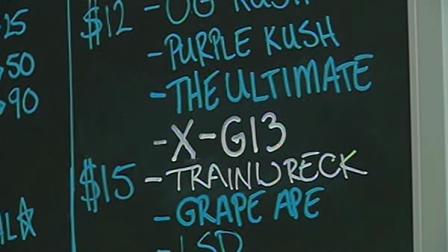 25
50
90
$12 - OG KUSH
- PURPLE KUSH
- THE ULTIMATE
- X-G13
$15 - TRAINWRECK
- GRAPE APE
- LSD